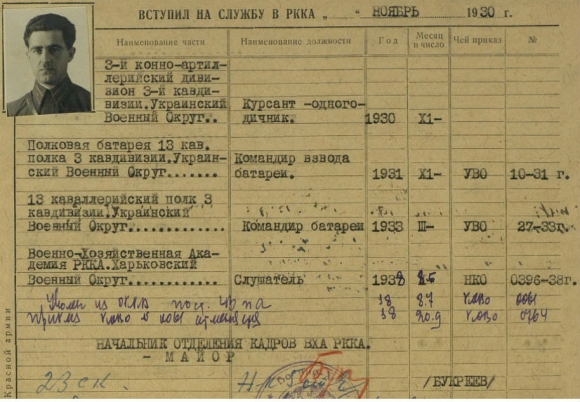 ВСТУПИЛ НА СЛУЖБУ В РККА „ „ НОЯБРЬ 1930 г.
Наименование части Наименование должности Год Месяц и число Чей приказ №
3-й конно-артил-
лерийский диви-
зион 3-й кавди-
визии.Украинский Курсант -одного-
Военный Округ.. дичник. 1930 Х1-
Полковая батарея 13 кав.
полка 3 кавдивизии.Украин- Командир взвода
ский Военный Округ....... батареи. 1931 Х1- УВО 10-31 г.
13 каваллерийский полк 3
кавдивизии.Украинский
Военный Округ. Командир батареи 1933 Ш- УВО 27-33г.
Военно-Хозяйственная Ака-
демия РККА.Харьковский
Военный Округ. Слушатель 1938 НКО 0396-38г.
из РККА 38 8.7
38 20.9 0764
НАЧАЛЬНИК ОТДЕЛЕНИЯ КАДРОВ ВХА РККА.
- МАЙОР
23 ск. /БУКРЕЕВ/
Красной армии